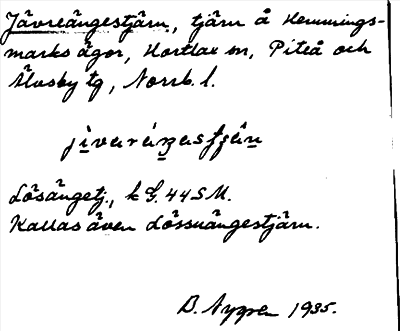 Jävreängestjärn, tjärn å Hemmings-
marks ägor, Hortlax sn, Piteå och
Älvsby tg, Norrb. l.
Lösängetj., k G. 44 S M.
Kallas även Lössnängestjärn.
B. Nygren 1935.